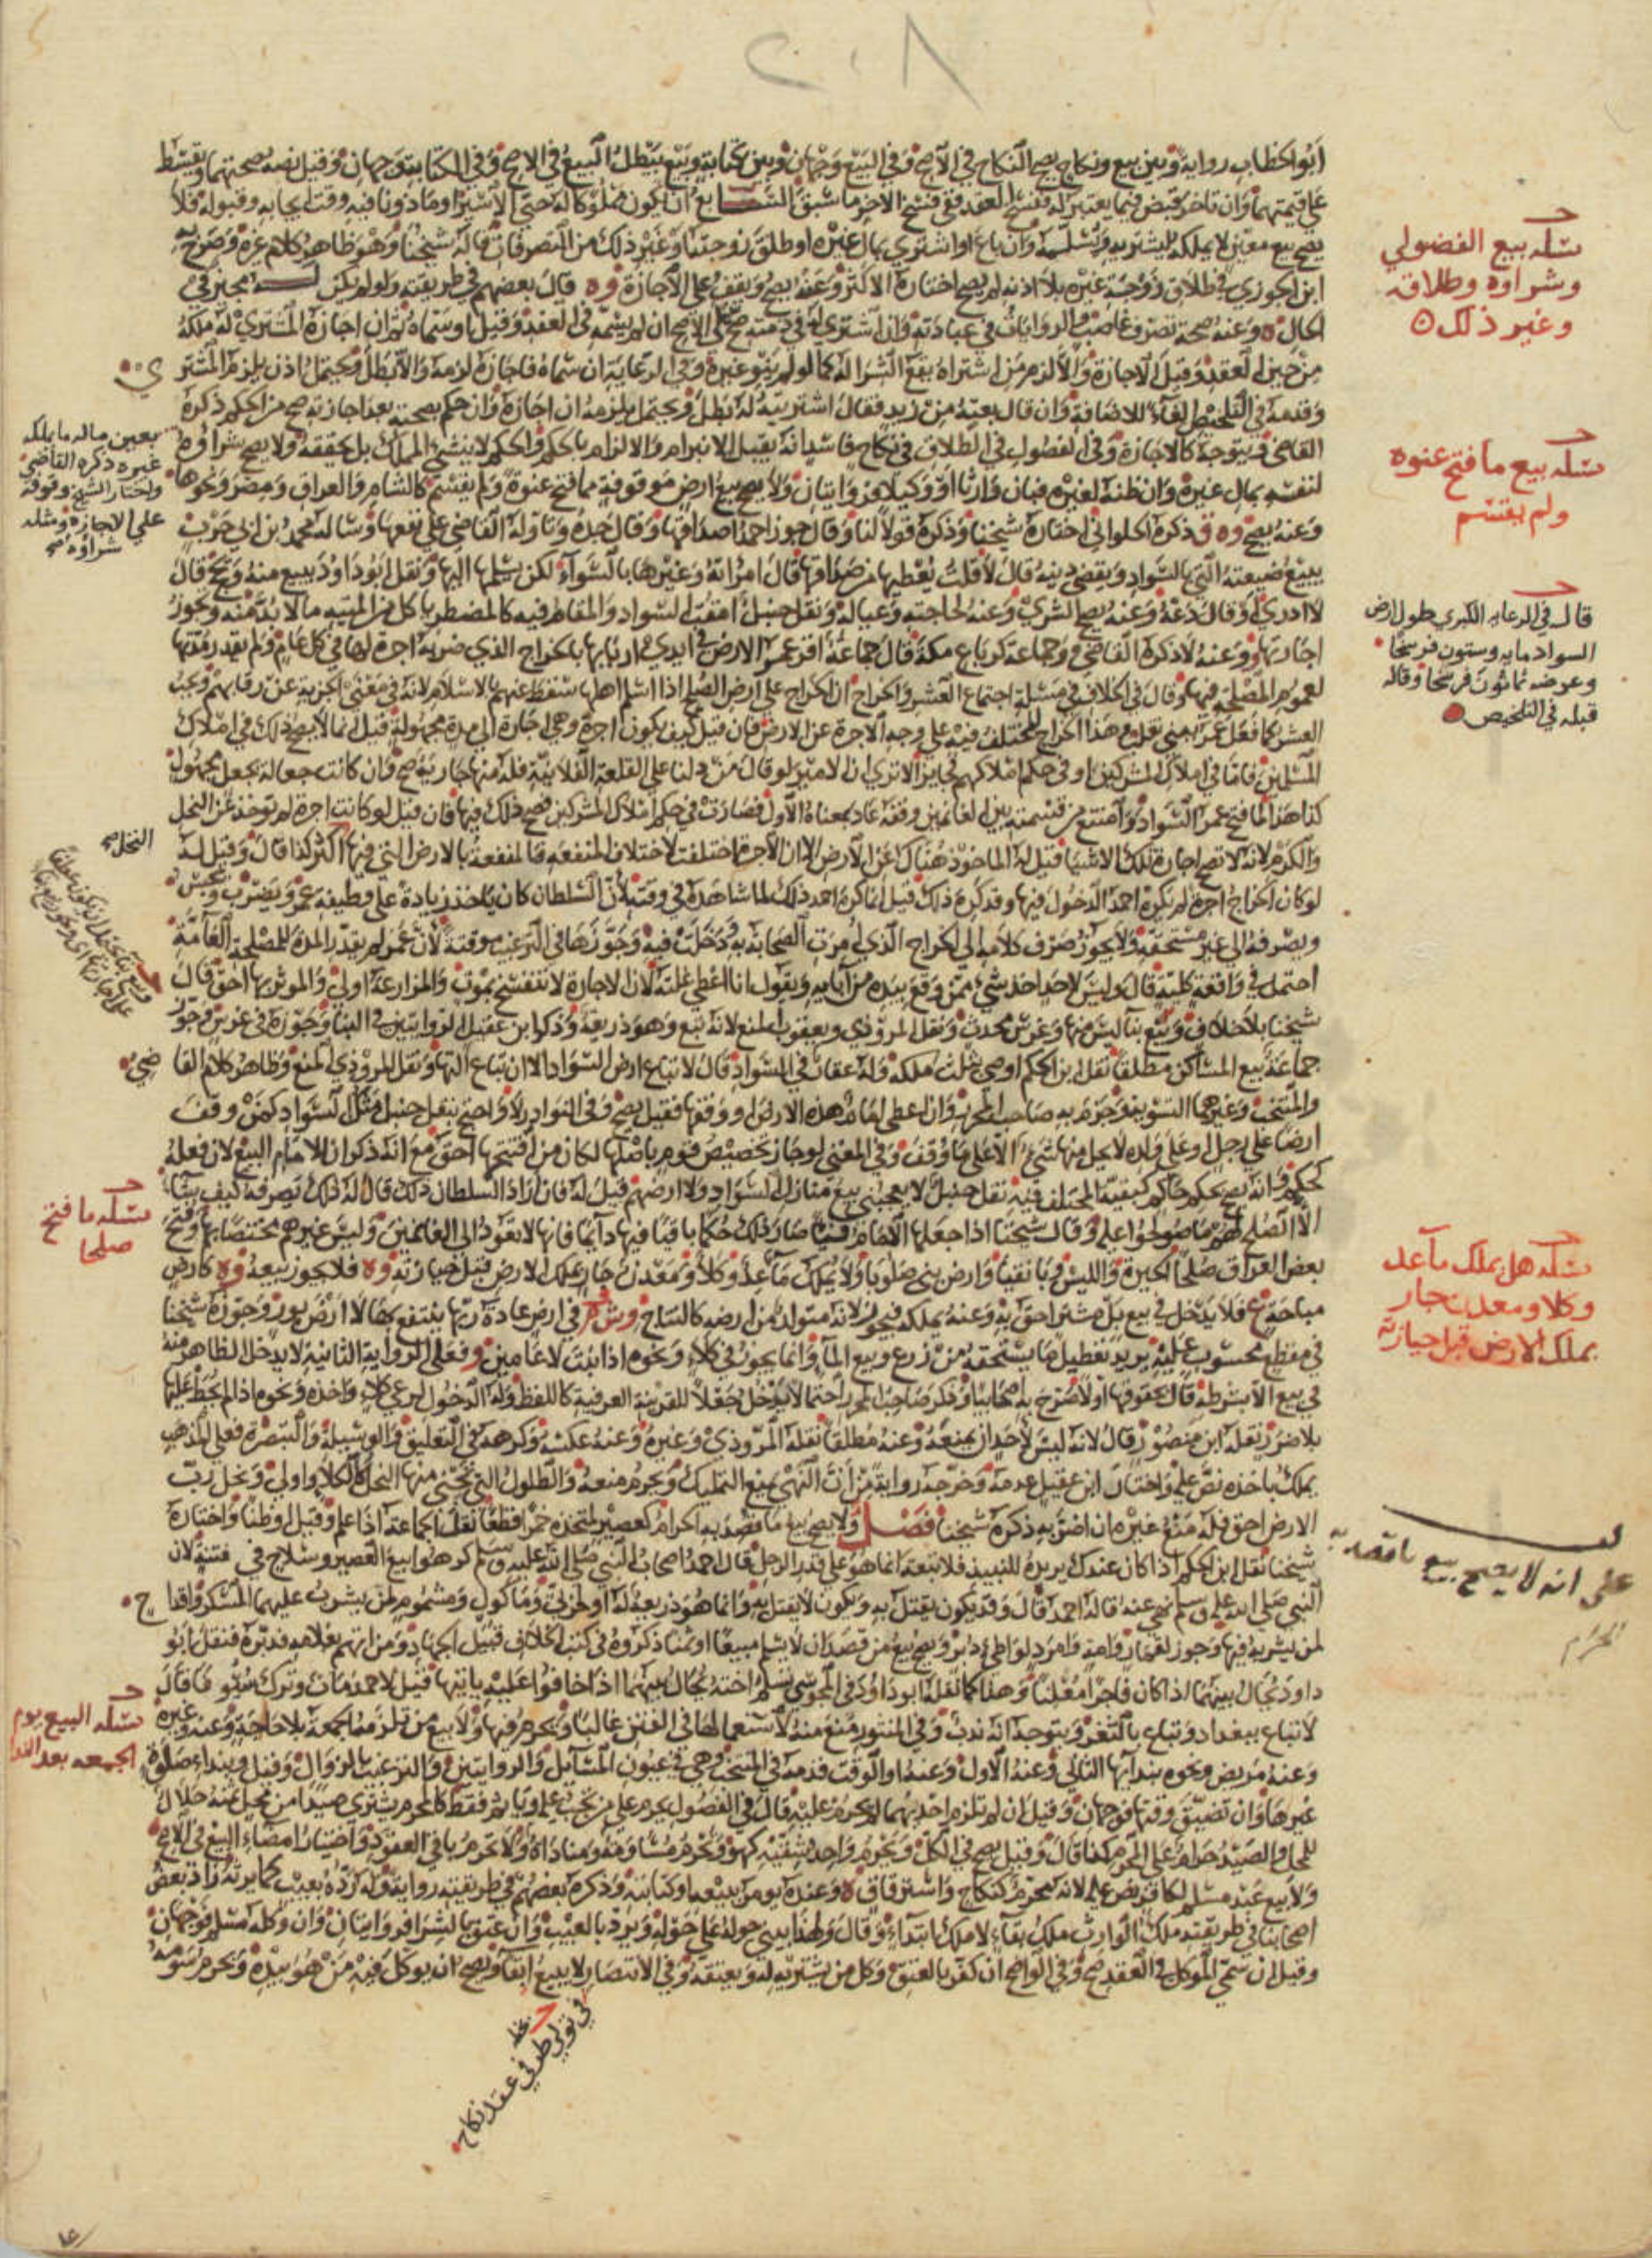 ٢٠٨
ابو الخطاب رواية وبين بيع ونكاح يصح النكاح في الاصح وفي البيع وجهان وبين كتابة وبيع يبطل البيع في الاصح وفي الكتابة وجهان وقيل نصه صحتهما ويقسط
على قيمتهما وان تاخر قبض فيما يعتبر له ففسخ العقد ففي فسخ الاخر ما سبق السابع ان يكون مملوكا له حتى الاسير او ماذونا فيه وقت ايجابه وقبوله فلا
يصح بيع معين لا يملكه ليشتريه ويسلمه وان باع او اشترى بمال غيره او طلق زوجته او غير ذلك من التصرفات قاله شيخنا وهو ظاهر كلام غيره وصرح به
ابن الجوزي في طلاق زوجة غيره بلا اذنه لم يصح اختاره الاكثر وعنه يصح ويقف على الاجازة وه قال بعضهم في طريقته ولو لم يكن له مجيز في
الحال وعنه صحة تصرف غاصب والروايات في عبادته وان اشترى له في ذمته صح على الاصح ان لم يسمه في العقد وقيل او سماه ثم ان اجازه المشترى له ملكه
من حين العقد وقيل الاجازة والا لزم من اشتراه يقع الشرا له كما لو لم ينو غيره وفي الرعاية ان سماه فاجازه لزمه والا بطل ويحتمل اذن يلزم المشتر ي
وقدمه في التلخيص الغاء للاضافة وان قال بعته من زيد فقال اشتريته له بطل ويحتمل يلزمه ان اجازه وان حكم بصحته بعد اجازته صح من الحكم ذكره
القاضي فيتوجه كالاجازة وفي الفصول في الطلاق في نكاح فاسد انه يقبل الانبرام والالزام بالحكم والحكم لا ينشئ الملك بل يحققه ولا يصح شراؤه
لنفسه بمال غيره وان ظنه لغيره فبان وارثا او وكيلا فروايتان ولا يصح بيع ارض موقوفة مما فتح عنوة ولم يقسم كالشام والعراق ومصر ونحوها
وعنه يصح وه ق ذكره الحلواني اختاره شيخنا وذكره قولا لنا وقال جوز احمد اصداقها وقال جده وتاوله القاضي على نفعها وساله محمد بن ابي حرب
يبيع ضيعته التي بالسواد ويقضي دينه قال لا قلت يعطيها من صداقها قال امراته وغيرها بالسواء لكن يسلمها اليها ونقل ابو داود يبيع منه ويحج قال
لا ادري او قال دعه وعنه يصح الشرى وعنه لحاجته وعياله ونقل حنبل امقت السواد والمقام فيه كالمضطر ياكل من الميتة ما لا بد منه وتجوز
اجارتها وعنه لا ذكره القاضي وجماعة كرباع مكة قال جماعة اقر عمر الارض في ايدي اربابها بالخراج الذي ضربه اجرة لها في كل عام ولم يقدر مدتها
لعموم المصلحة فيها وقال في الخلاف في مسئلة اجتماع العشر والخراج ان الخراج على ارض الصلح اذا اسلم اهلها سقط عنهم بالاسلام لانه في معنى الجزية عن رقابهم ويجب
المسلمين فاما في املاك المشركين او في حكم املاكهم فجايز الا ترى ان الامير لو قال من دلنا على القلعة الفلانية فله منها جارية صح وان كانت جعالة بجعل مجهول
كذا هذا لما فتح عمر السواد وامتنع من قسمته بين الغانمين وقفه عاد بمعناه الاول فصارت في حكم املاك المشركين فصح ذلك فيها فان قيل لو كانت اجرة لم توخذ عن النخل
والكرم لانه لا تصح اجارة تلك الاشيا قيل له الماخوذ هناك عن الارض الا ان الاجرة اختلفت لاختلاف المنفعة فالمنفعة بالارض التي فيها اكثر كذا قال وقيل له
لو كان الخراج اجرة لم يكره احمد الدخول فيها وقد كره ذلك قيل انما كره احمد ذلك لما شاهده في وقته لان السلطان كان ياخذ زيادة على وظيفة عمر ويضرب ويحبس
ويصرفه الى غير مستحقه ولا يجوز صرف كلامه الى الخراج الذي امرت الصحابة به ودخلت فيه وجوزها في الترغيب موقتة لان عمر لم يقدر المدة للمصلحة العامة
احتمل في واقعة كلية قال وليس لاحد اخذ شي ممن وقع بيده من ابايه ويقول انا اعطي غلته لان الاجارة لا تنفسخ بموت والمزارعة اولى والموثر بها احق قال
شيخنا بلا خلاف وبيع بنا ليس منها وغرس محدث ونقل المروذي ويعقوب المنع لانه تبع وهو ذريعة وذكر ابن عقيل الروايتين في البنا وجوزه في غرس وجوز
جماعة بيع المساكن مطلقا نقل ابن الحكم اوصى بثلث ملكه وله عقار في السواد قال لا تباع ارض السواد الا ان تباع التها ونقل المروذي المنع وظاهر كلام القا ضي
والمنتخب وغيرهما التسوية وجزم به صاحب المحرر وان اعطى امام هذه الارض او وقفها فقيل يصح وفي النوادر لا واحتج بنقل حنبل مثل السواد كمن وقف
ارضا على رجل او على ولده لا يحل منها شي الا على ما وقف وفي المغني لو جاز تخصيص قوم باصلها لكان من افتتحها احق مع انه ذكر ان للامام البيع لان فعله
كحكم وانه يصح بحكم حاكم كبقية المختلف فيه نقل حنبل لا يعجبني بيع منازل السواد ولا ارضهم قيل له فان اراد السلطان ذلك قال له ذلك يصرفه كيف شا
الا الصلح لهم ما صولحوا عليه وقال شيخنا اذا جعلها الامام فيئا صار ذلك حكما باقيا فيها دايما فانها لا تعود الى الغانمين وليس غيرهم مختصا بها وفتح
بعض العراق صلحا الحيرة والليس وبانقيا وارض بني صلوبا ولا يملك ما عد وكلا ومعدن جار بملك الارض قبل حيازته وه فلا يجوز بيعه وه كارض
مباحة ع فلا يدخل في بيع بل مشتر احق به وعنه يملكه فيجوز لانه متولد من ارضه كالنتاج وش قر في ارض عادة ربها ينتفع بها لا ارض بور وجوزه شيخنا
في مقطع محسوب عليه يريد تعطيل ما يستحقه من زرع وبيع الما وانما يجوز في كلاء ونحوه اذا نبت لا عامين وفعلى الرواية الثانية لا يدخل الظاهر منه
في بيع الا بشرطه قال بحقوقها او لا صرح به اصحابنا وذكر صاحب المحرر احتمالا يدخل جعلا للقرينة العرفية كاللفظ وله الدخول لرعي كلاء واخذه ونحوه اذا لم يحط عليها
بلا ضرر نقله ابن منصور وقال لانه ليس لاحد ان يمنعه وعنه مطلقا نقله المروذي وغيره وعنه عكسه وكرهه في التعليق والوسيلة والتبصرة فعلى المذهب
يملك باخذه نص عليه واختار ابن عقيل عدمه وخرجه رواية من ان النهي يمنع التمليك ويحرم منعه والطلول التي تجني منها النحل كالكلاء واولى ونحل رب
الارض احق فله منع غيره ان اضر به ذكره شيخنا فصل ولا يصح بيع ما قصد به الحرام كعصير لمتخذه خمرا قطعا نقله الجماعة اذا علم وقيل او ظنا واختاره
شيخنا نقل ابن الحكم اذا كان عندك يريده للنبيذ فلا تبعه انما هو على قدر الرجل قال احمد اصحاب النبي صلى الله عليه وسلم كرهوا بيع العصير وسلاح في فتنة لان
النبي صلى الله عليه وسلم نهى عنه قاله احمد قال وقد يكون يقتل به ويكون لا يقتل به وانما هو ذريعة له او لحربي وماكول ومشموم لمن يشرب عليهما المسكر واقدا ح
لمن يشربه فيها وجوز لقمار وامة وامرد لواطئ دبر ويصح بيع من قصد ان لا يسلم مبيعا او ثمنا ذكروه في كتب الخلاف قبيل الجهاد ومن اتهم بغلامه فدبره فنقل ابو
داود يحال بينهما اذا كان فاجرا معلنا وهذا كما نقله ابو داود في المجوسي تسلم اخته يحال بينهما اذا خافوا عليه ياتيها قيل لاحمد مات وترك سيوفا قال
لا تباع ببغداد وتباع بالثغر ويتوجه انه ندب وفي المنثور منع منه لاستعمالها في الفتن غالبا ويحرم فيها ولا بيع من تلزمه الجمعة بلا حاجة وعنه وغيره
وعنه مريض ونحوه بندائها الثاني وعنه الاول وعنه او الوقت قدمه في المنتخب وهي في عيون المسائل والروايتين والترغيب بالزوال وقيل وبنداء صلوة
غيرها وان تضيق وقتها فوجهان وقيل ان لم تلزم احدهما لم يحرم عليه قال في الفصول يحرم على من تجب عليه وياثم فقط كالمحرم يشتري صيدا من محل منه حلال
للمحل والصيد حرام على المحرم كذا قال وقيل يصح في الكل ويحرم واحد بشقيه كهو وتحرم مساومة ومناداة ولا تحرم باقي العقود واختيار امضاء البيع في الاصح
ولا بيع عبد مسلم لكافر نص عليه لانه يحرم كنكاح واسترقاق ه وعنده يومر ببيعه او كتابته وذكره بعضهم في طريقته رواية وله رده بعيب كما يرثه زاد بعض
اصحابنا في طريقته ملك الوارث ملك بقاء لا ملك ابتداء وقال ولهذا يبني حوله على حوله ويرد بالعيب وان عتق بالشرا فروايتان وان وكله مسلم فوجهان
وقيل ان سمى الموكل في العقد صح وفي الواضح ان كفر بالعتق وكل من يشتريه له ويعتقه وفي الانتصار لا يبيع ابقا ويصح انه يوكل فيه من هو بيده ويحرم سومه
مسئله بيع الفضولي
وشراوه وطلاقه
وغير ذلك
مسئله بيع ما فتح عنوه
ولم يقتسم
قال في الرعايه الكبرى طول ارض
السواد مايه وستون فرسخا
وعرضه ثمانون فرسخا وقاله
قبله في التلخيص
مسئله هل يملك ما عد
وكلا ومعدن جار
بملك الارض قبل حيازته
على انه لا يصح بيع ما قصد به
الحرام
بعين ماله ما يملكه
غيره ذكره القاضي
واختار الشيخ وقوفه
على الاجازه ومثله
شراؤه
النخل صح
مسئله ما فتح
صلحا
مسئله البيع يوم
الجمعه بعد الندا
في تولي طرفي عقد نكاح